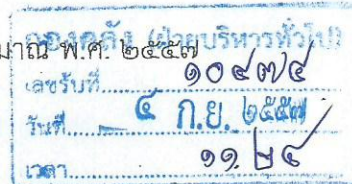 มาณ พ.ศ. ๒๕๕๗
กองคลัง (ฝ่ายบริหารทั่วไป)
เลขรับที่ ๑๐๔๗๔
วันที่ ๔ ก.ย. ๒๕๕๗
เวลา ๑๑.๒๔